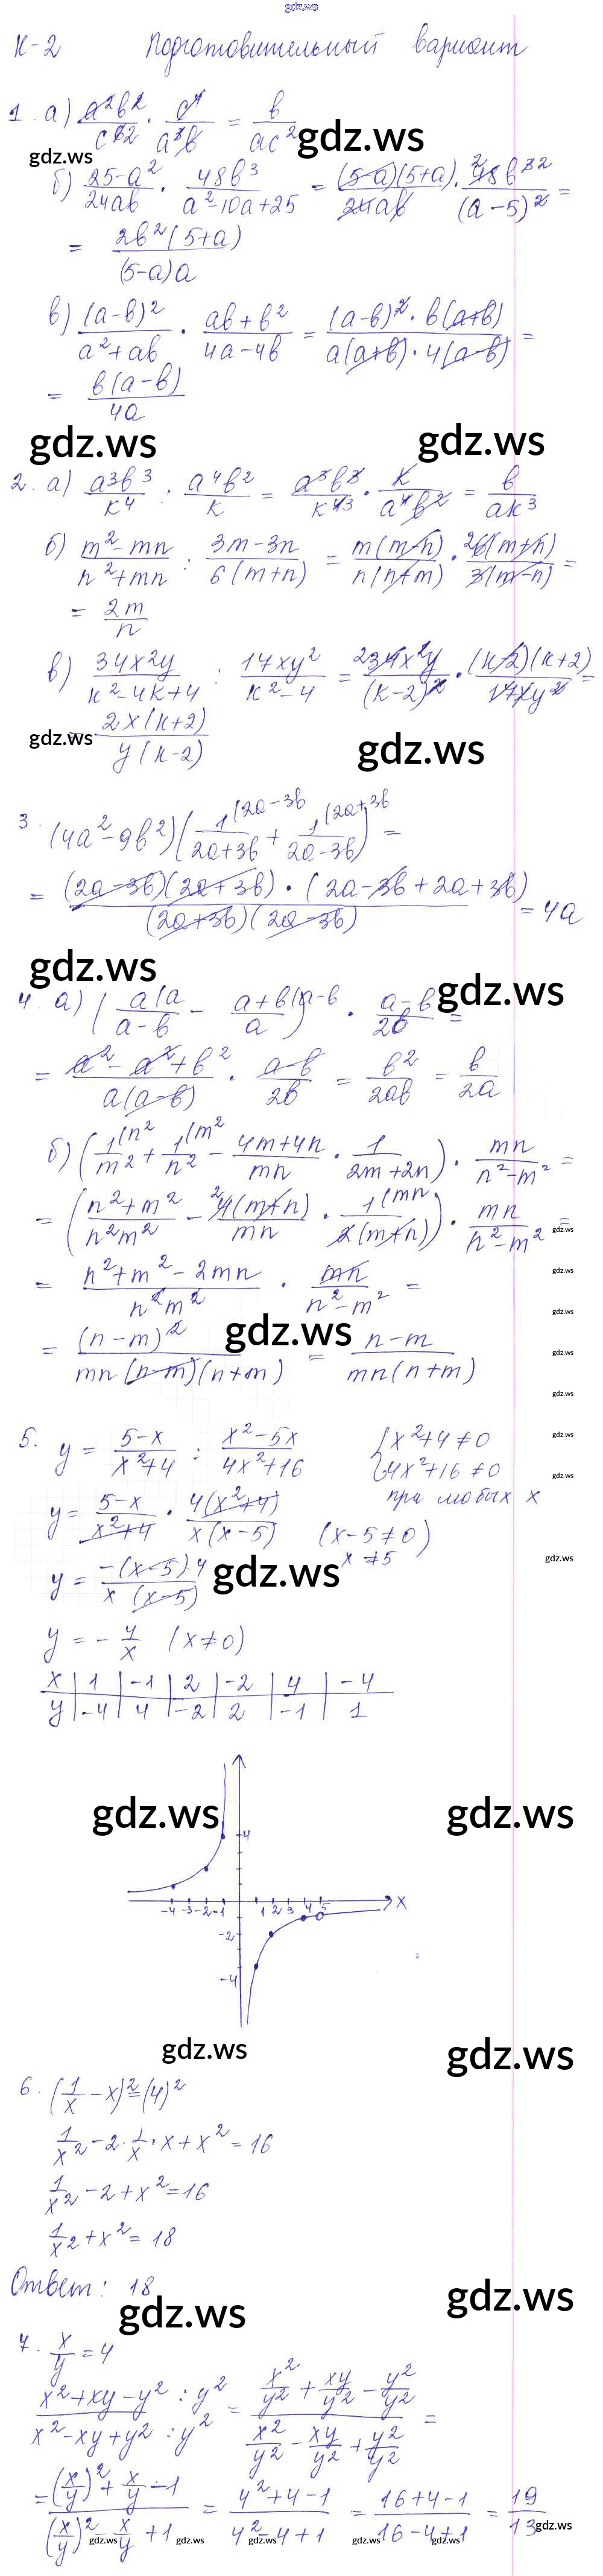 gdz.ws
К-2 Подготовительный вариант
1. а) a²b²/c³² · c⁴/a³b = b/ac² gdz.ws
gdz.ws
б) 25-a²/24ab · 48b³/a²-10a+25 = (5-a)(5+a)/24ab · ²48b³²/(a-5)² =
= 2b²(5+a)/(5-a)a
в) (a-b)²/a²+ab · ab+b²/4a-4b = (a-b)² · b(a+b)/a(a+b) · 4(a-b) =
= b(a-b)/4a
gdz.ws gdz.ws
2. а) a³b³/k⁴ : a⁴b²/k = a³b³/k⁴³ · k/a⁴b² = b/ak³
б) m²-mn/n²+mn : 3m-3n/6(m+n) = m(m-n)/n(n+m) · ²6(m+n)/3(m-n) =
= 2m/n
в) 34x²y/k²-4k+4 : 17xy²/k²-4 = ²34x²y/(k-2)² · (k-2)(k+2)/17xy² =
gdz.ws 2x(k+2)/y(k-2) gdz.ws
3. (4a²-9b²)(1/2a+3b + 1/2a-3b) =
= (2a-3b)(2a+3b) · (2a-3b+2a+3b)/(2a+3b)(2a-3b) = 4a
gdz.ws gdz.ws
4. а) (a/a-b - a+b/a) · a-b/2b =
= a²-a²+b²/a(a-b) · a-b/2b = b²/2ab = b/2a
б) (1/m² + 1/n² - 4m+4n/mn · 1/2m+2n) · mn/n²-m² =
= (n²+m²/n²m² - ²4(m+n)/mn · 1/2(m+n)) · mn/n²-m² =
gdz.ws
= n²+m²-2mn/n²m² · mn/n²-m² =
gdz.ws
gdz.ws
= (n-m)²/mn(n-m)(n+m) = n-m/mn(n+m)
gdz.ws
gdz.ws
gdz.ws
5. y = 5-x/x²+4 : x²-5x/4x²+16 {x²+4≠0
{4x²+16≠0
gdz.ws
gdz.ws
при любых x
y = 5-x/x²+4 · 4(x²+4)/x(x-5) (x-5≠0)
x≠5
gdz.ws
y = -(x-5)·4/x(x-5) gdz.ws
y = -4/x (x≠0)
x | 1 | -1 | 2 | -2 | 4 | -4
y | -4 | 4 | -2 | 2 | -1 | 1
gdz.ws gdz.ws
4
-4 -3 -2 -1 1 2 3 4 5 x
-2
-4
gdz.ws gdz.ws
6. (1/x - x)² = (4)²
1/x² - 2·1/x·x + x² = 16
1/x² - 2 + x² = 16
1/x² + x² = 18
Ответ: 18
gdz.ws gdz.ws
7. x/y = 4
x²+xy-y² : y²/x²-xy+y² : y² = x²/y² + xy/y² - y²/y² / x²/y² - xy/y² + y²/y² =
= (x/y)² + x/y - 1/(x/y)² - x/y + 1 = 4²+4-1/4²-4+1 = 16+4-1/16-4+1 = 19/13
gdz.ws gdz.ws gdz.ws gdz.ws gdz.ws gdz.ws